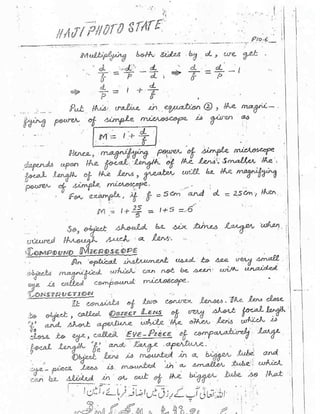 HAJI PHOTO STATE
P10-6
Multiplying both sides by d, we get
d/f = d/p - d/d ⇒ d/f = d/p - 1
⇒ d/p = 1 + d/f
Put this value in equation ②, the magni-
fying power of simple microscope is given as
M = 1 + d/f
Hence, magnifying power of simple microscope
depends upon the focal length of the lens. Smaller the
focal length of the lens, greater will be the magnifying
power of simple microscope.
For example, if f = 5cm and d = 25cm, then
M = 1 + 25/5 = 1+5 = 6
So, object should be six times larger when
viewed through such a lens.
COMPOUND MICROSCOPE
An optical instrument used to see very small
objects magnified which can not be seen with unaided
eye is called compound microscope.
CONSTRUCTION
It consists of two convex lenses. The lens close
to object, called OBJECT LENS of very short focal length
'f' and short aperture while the other lens which is
close to eye, called EYE-PIECE of comparatively large
focal length 'f' and large aperture.
Object lens is mounted in a bigger tube and
eye-piece lens is mounted in a smaller tube which
can be slided in or out of the bigger tube so that